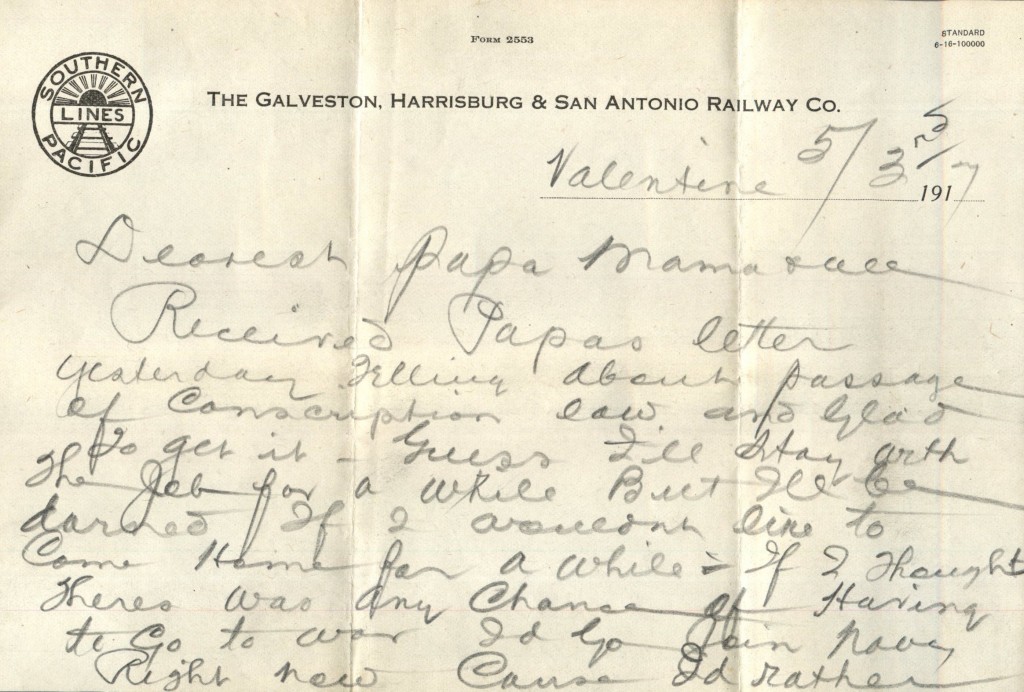 FORM 2553
STANDARD
6-16-100000
SOUTHERN
LINES
PACIFIC
THE GALVESTON, HARRISBURG & SAN ANTONIO RAILWAY CO.
Valentine 5/3rd 1917
Dearest Papa Mama & all
Received Papas letter
yesterday Telling about passage
of Conscription law and Glad
To get it - Guess I'll stay with
The Job for a while But I'll be
darned If I wouldnt like to
Come Home for a while - If I Thought
Theres was any Chance of Having
to Go to war Id Go Join Navy
Right now Cause Id rather